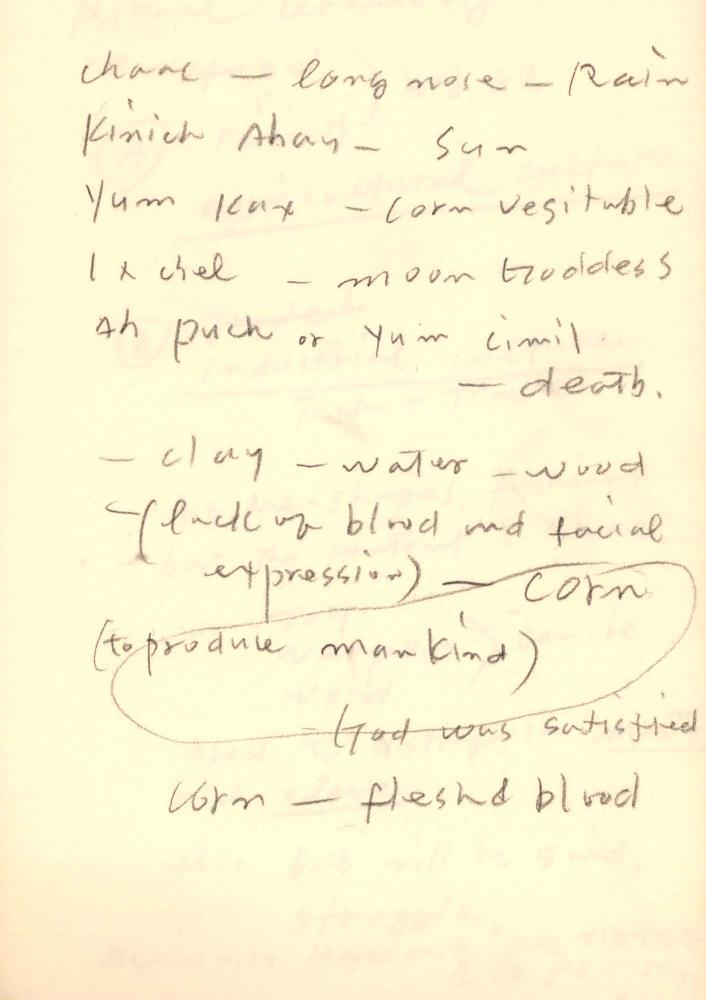 Chaac — long nose — Rain
Kinich Ahau — Sun
Yum Kax — Corn vegitable
Ix chel — moon Goddess
Ah puch or Yum cimil
— death.
— clay — water — wood
(lack of blood and facial
expression) — corn
(to produce mankind)
God was satisfied
Corn — flesh & blood